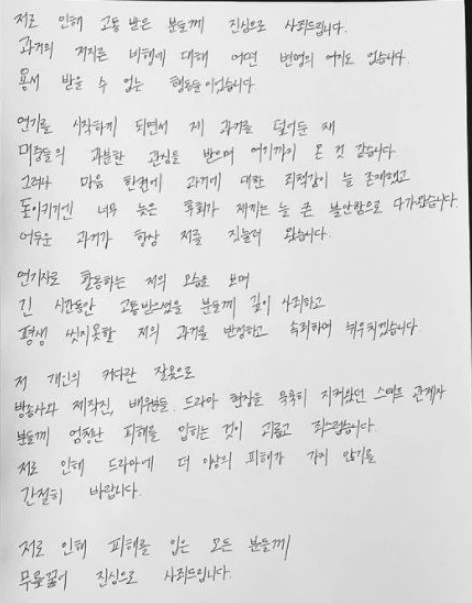 저로 인해 고통 받은 분들께 진심으로 사죄드립니다.
과거의 저지른 비행에 대해 어떤 변명의 여지도 없습니다.
용서 받을 수 없는 행동들이었습니다.
연기를 시작하게 되면서 제 과거를 덮어둔 채
대중들의 과분한 관심을 받으며 여기까지 온 것 같습니다.
그러나 마음 한켠에 과거에 대한 죄책감이 늘 존재했고
돌이키기엔 너무 늦은 후회가 저에게는 늘 큰 불안함으로 다가왔습니다.
어두운 과거가 항상 저를 짓눌러 왔습니다.
연기자로 활동하는 저의 모습을 보며
긴 시간동안 고통받으셨을 분들께 깊이 사죄하고
평생 씻지못할 저의 과거를 반성하고 속죄하며 뉘우치겠습니다.
저 개인의 커다란 잘못으로
방송사와 제작진, 배우분들, 드라마 현장을 묵묵히 지켜왔던 스태프 관계자
분들께 엄청난 피해를 입히는 것이 괴롭고 죄스럽습니다.
저로 인해 드라마에 더 이상의 피해가 가지 않기를
간절히 바랍니다.
저로 인해 피해를 입은 모든 분들께
무릎꿇어 진심으로 사죄드립니다.